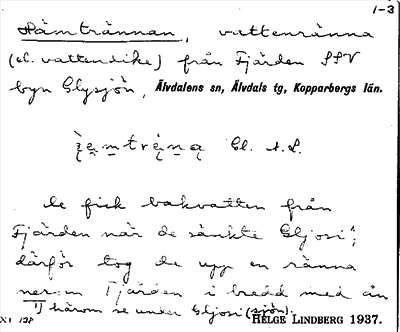 1-3
Hämtrännan, vattenränna
(el. vattendike) från Fjärden SSV
byn Glysjön, Älvdalens sn, Älvdals tg, Kopparbergs län.
best. f.
de fick bakvatten från
Fjärden när de sänkte Gljosi¹⁾;
därför tog de upp en ränna
nerom Fjärden i bredd med ån
¹⁾ härom se under Gljosi (sjön).
XI 138 HELGE LINDBERG 1937.